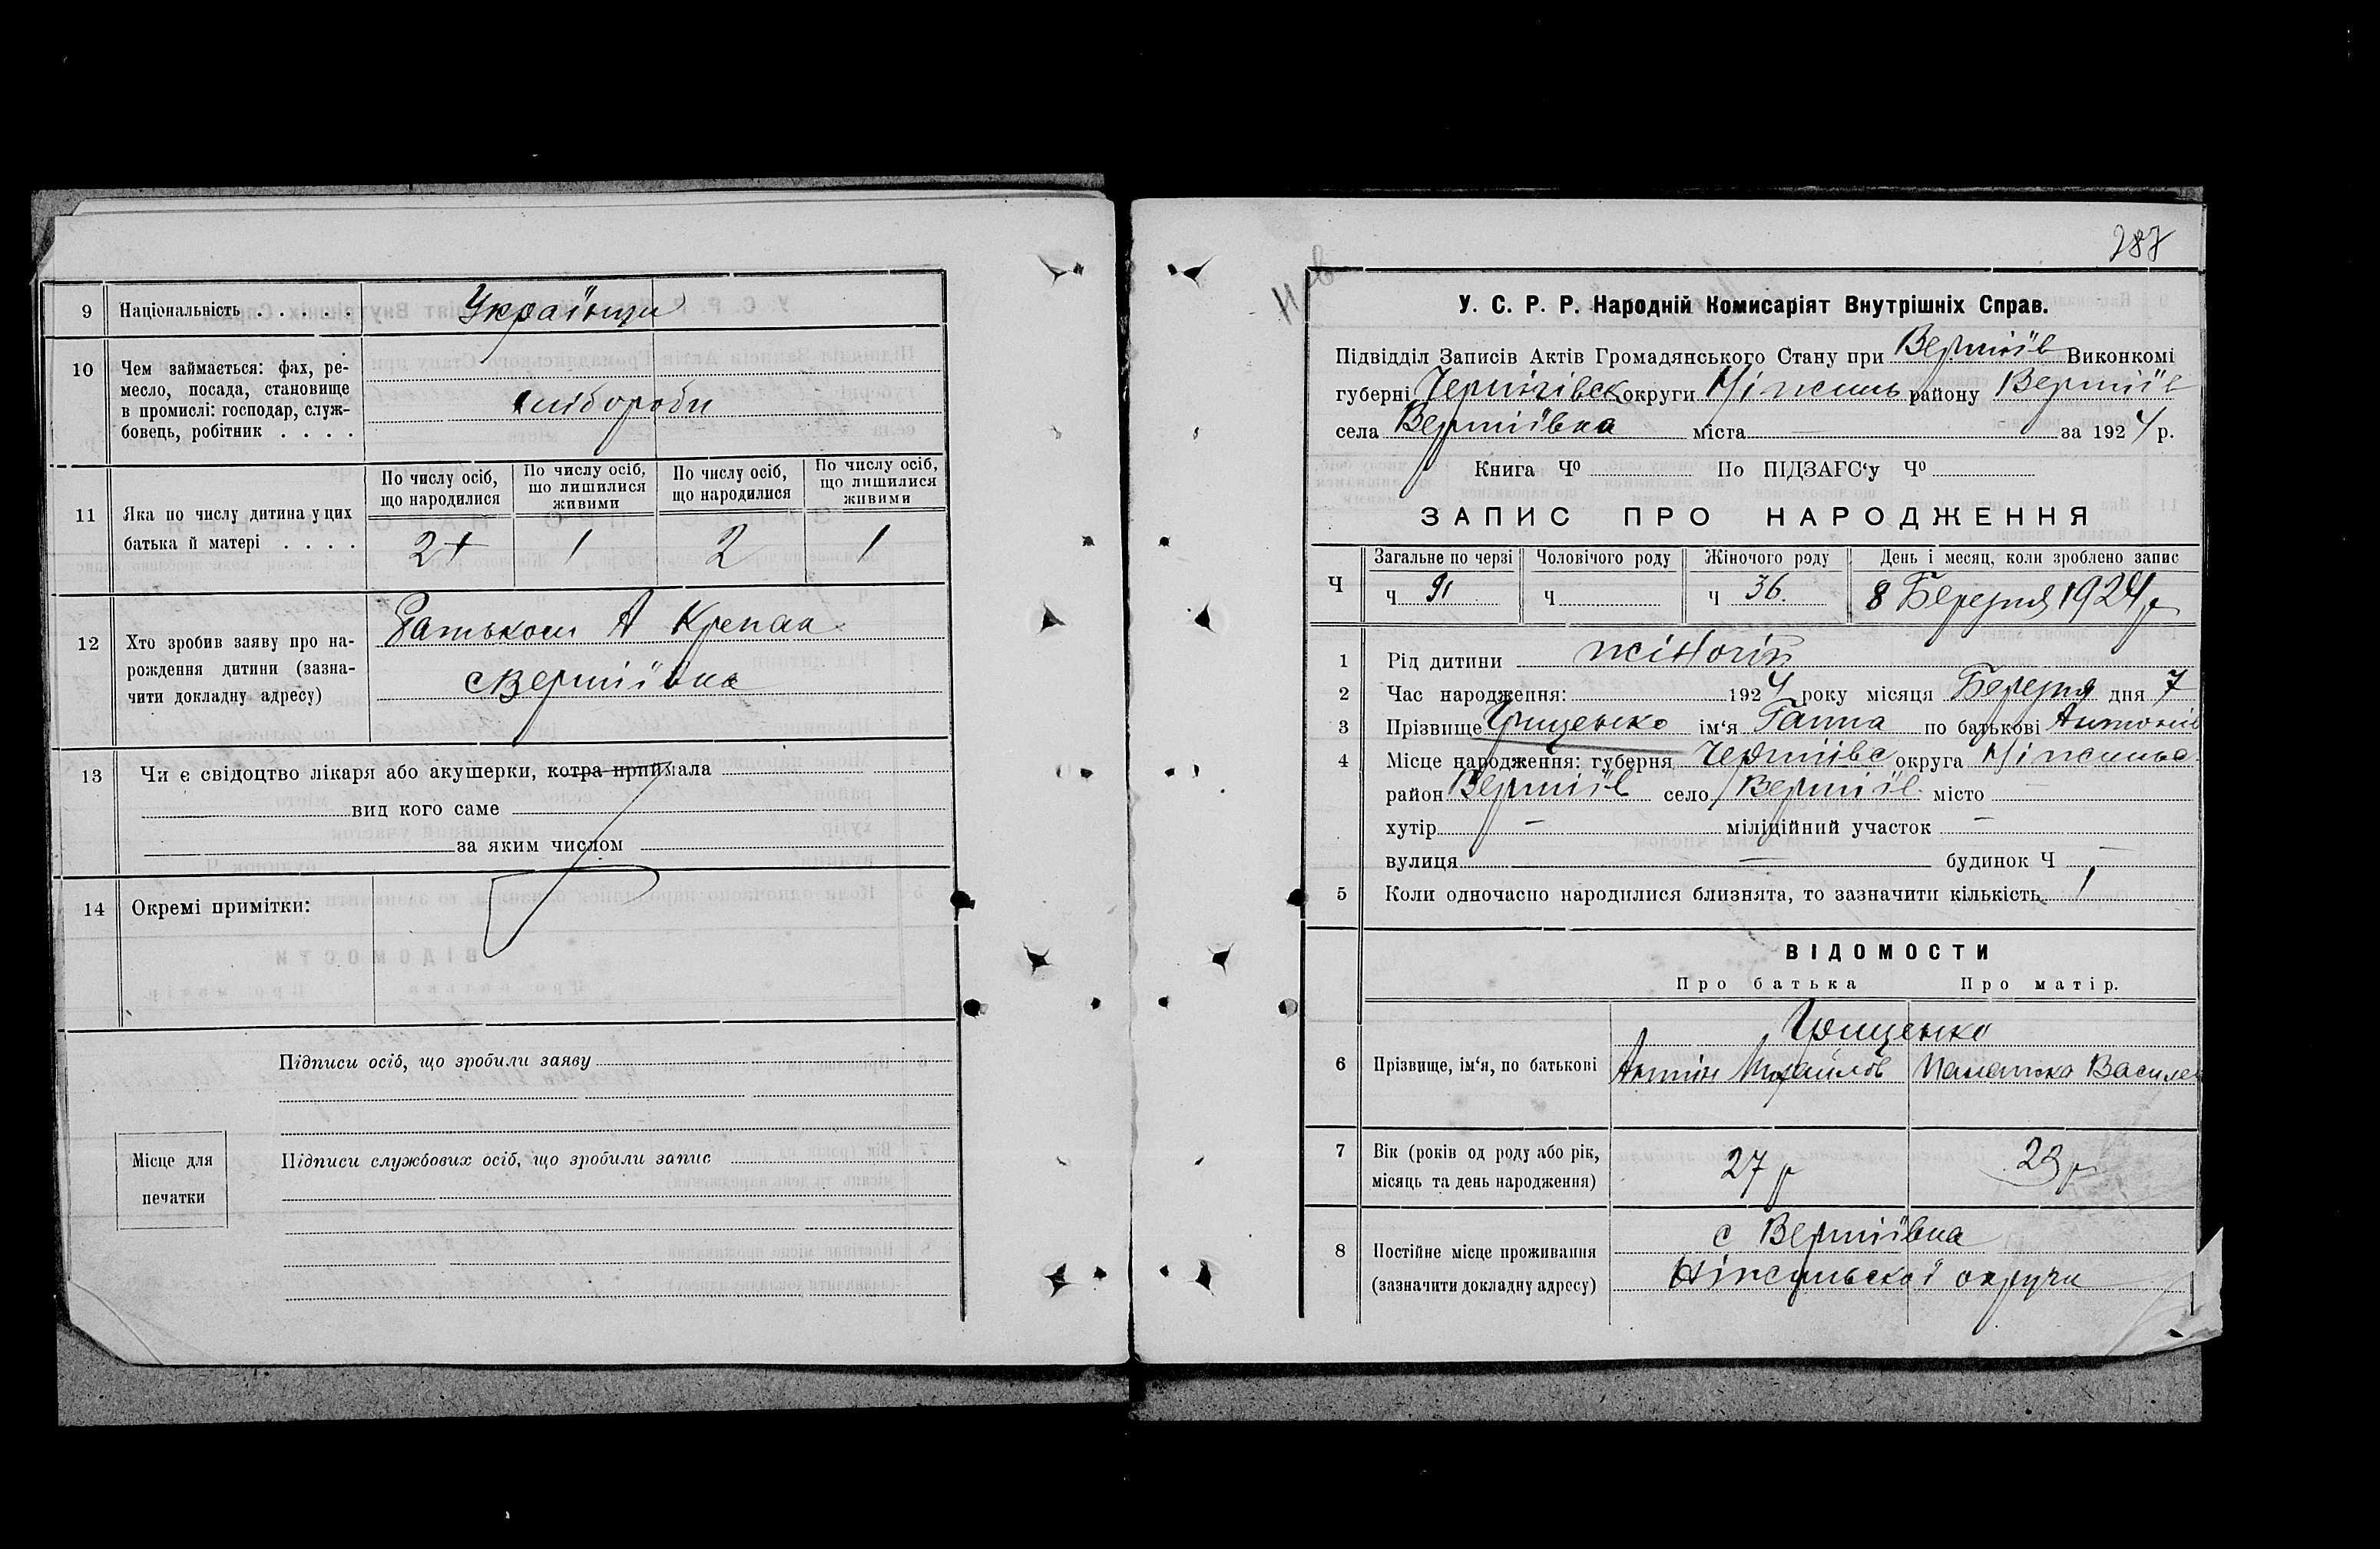 9 Національність . . . . . Українци
10 Чем займається: фах, ре-
месло, посада, становище
в промислі: господар, служ-
бовець, робітник . . . . хлібороби
11 Яка по числу дитина у цих
батька й матері . . . .
По числу осіб, що народилися
По числу осіб, що лишилися живими
По числу осіб, що народилися
По числу осіб, що лишилися живими
2 1 2 1
12 Хто зробив заяву про на-
рождення дитини (зазна-
чити докладну адресу)
Батьком А
с Вертіївка
13 Чи є свідоцтво лікаря або акушерки, котра приймала
вид кого саме
за яким числом
14 Окремі примітки:
Підписи осіб, що зробили заяву
Місце для
печатки
Підписи службових осіб, що зробили запис
287
У. С. Р. Р. Народній Комисаріят Внутрішніх Справ.
Підвідділ Записів Актів Громадянського Стану при Вертіїв Виконкомі
губерні Чернігівск округи Ніжинь району Вертіїв
села Вертіївка міста — за 1924 р.
Книга Ч⁰ По ПІДЗАГС‘у Ч⁰
ЗАПИС ПРО НАРОДЖЕННЯ
Ч Загальне по черзі Чоловічого роду Жіночого роду День і месяц, коли зроблено запис
Ч 91 Ч Ч 36. 8 Березня 1924 р
1 Рід дитини жіночій
2 Час народження: 1924 року місяця Березня дня 7
3 Прізвище Грищенко ім‘я Ганна по батькові Антонів
4 Місце народження: губерня округа
район Вертіїв село Вертіїв. місто —
хутір — міліційний участок —
вулиця — будинок Ч —
5 Коли одночасно народилися близнята, то зазначити кількість 1
ВІДОМОСТИ
Про батька Про матір.
Грищенко
6 Прізвище, ім‘я, по батькові Антін Михайлов Василев
7 Вік (років од роду або рік,
місяць та день народження) 27 р 23 р
8 Постійне місце проживання
(зазначити докладну адресу)
с Вертіївка
Ніжинської округи